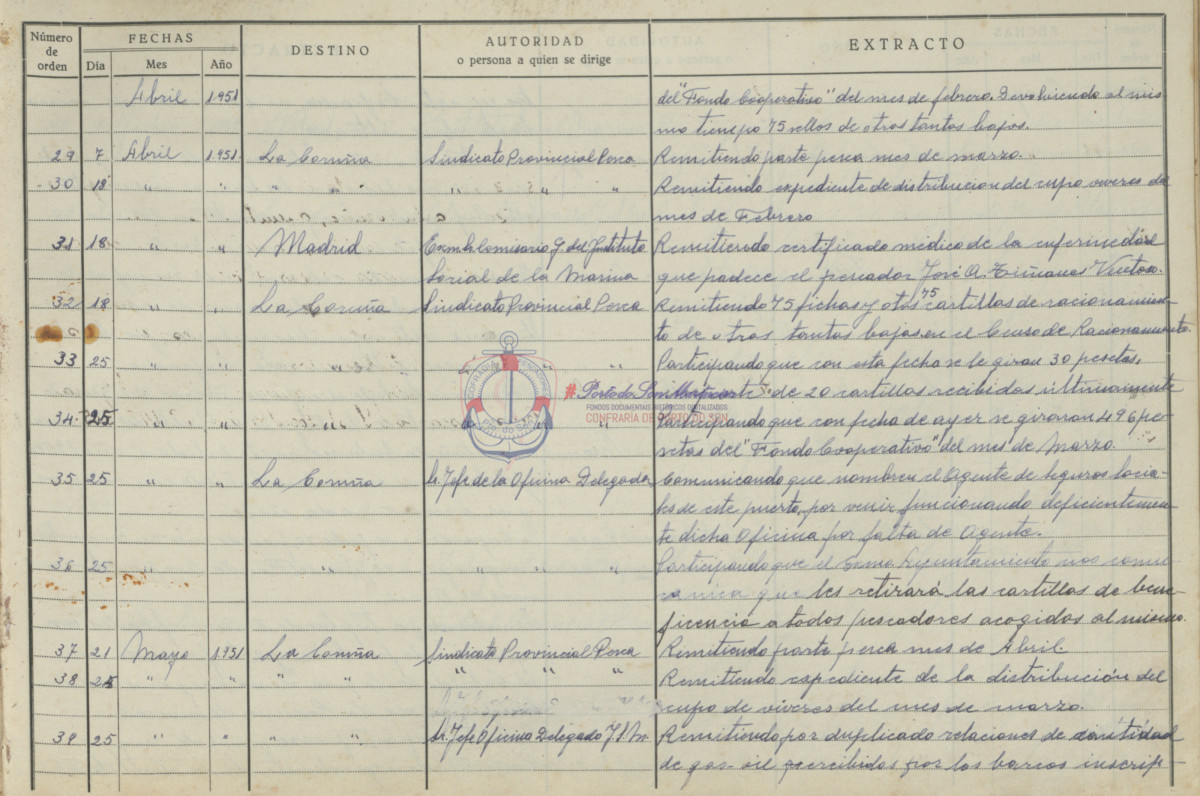 Número de orden FECHAS DESTINO AUTORIDAD o persona a quien se dirige EXTRACTO
Día Mes Año
Abril 1.951 del "Fondo Cooperativo" del mes de febrero. Devolviendo al mis-
mo tiempo 75 sellos de otras tantas bajas.
29 7 Abril 1.951. La Coruña Sindicato Provincial Pesca Remitiendo parte pesca mes de marzo.
30 18 " " " " " " " Remitiendo expediente de distribucion del cupo viveres del
mes de Febrero
31 18 " " Madrid. Exmo. Sr. Comisario G. del Instituto Remitiendo certificado médico de la enfermedad
Social de la Marina que padece el pescador José A. Ventoso.
32 18 " " La Coruña Sindicato Provincial Pesca Remitiendo 75 fichas y otras 75 cartillas de racionamien-
to de otras tantas bajas en el Censo de Racionamiento.
33 25 " " " " Participando que con esta fecha se le giran 30 pesetas,
de 20 cartillas recibidas ultimamente
34 25 " " " " Participando que con fecha de ayer se giraron 496 pe-
setas del "Fondo Cooperativo" del mes de Marzo
35 25 " " La Coruña Sr. Jefe de la Oficina Delegada Comunicando que nombren el Agente de Seguros Socia-
les de este puerto, por venir funcionando deficientemen-
te dicha Oficina por falta de Agente.
36 25 " " " " " Participando que el Exmo Ayuntamiento nos comu-
nica que les retirará las cartillas de bene-
ficencia a todos pescadores acogidos al mismo.
37 21 Mayo 1.951 La Coruña Sindicato Provincial Pesca Remitiendo parte pesca mes de Abril.
38 25 " " " " " " " Remitiendo expediente de la distribución del
cupo de viveres del mes de marzo.
39 25 " " " Sr. Jefe Oficina Delegada I.S.M. Remitiendo por duplicado relaciones de cantidad
de gas-oil percibidos por los barcos inscrip-
CONFRADÍA DE PESCADORES
PTO. DO SON
#PortodoSon
FONDOS DOCUMENTAIS HISTÓRICOS DIXITALIZADOS
CONFRARÍA DE PORTO DO SON